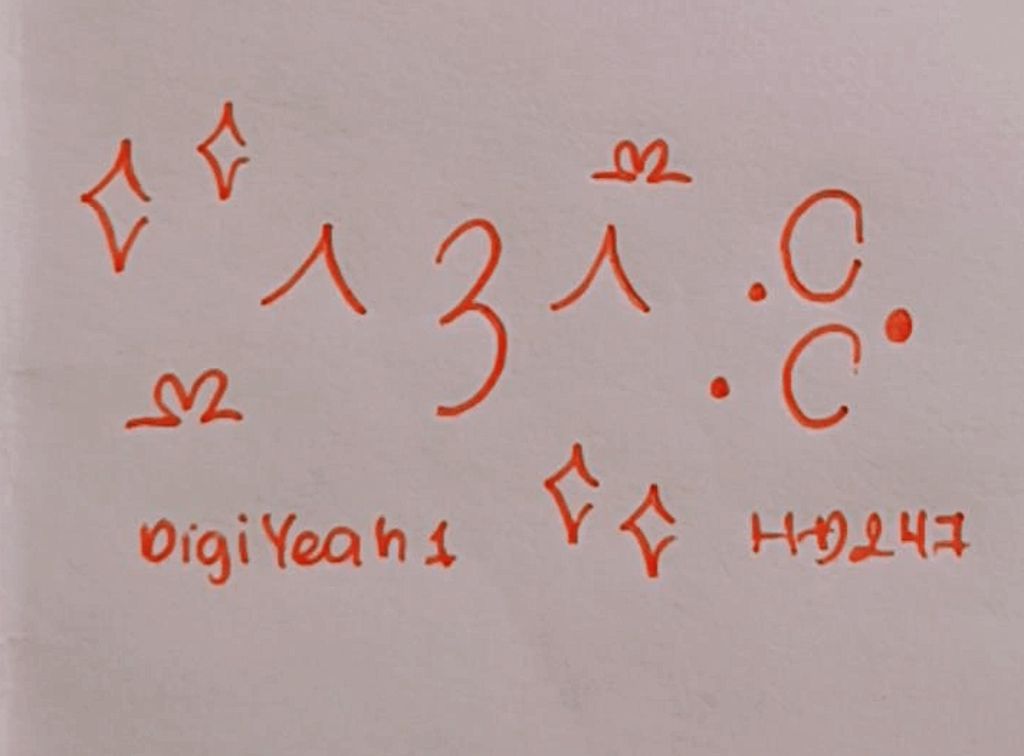 ^ 3 ^ .C
.C.
DigiYeah1 HD247